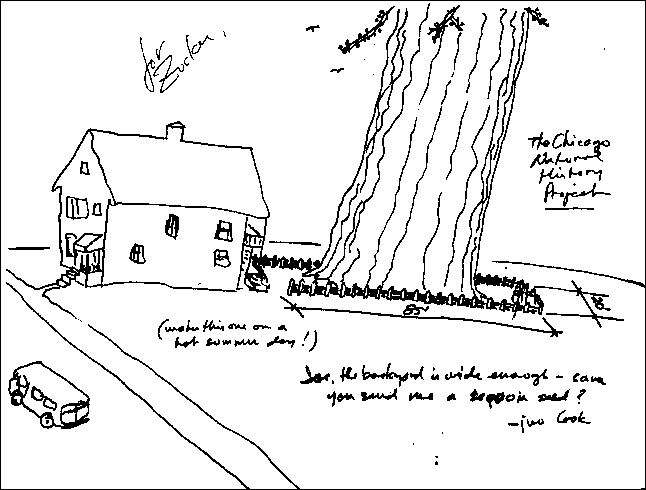 for
Zucker,
The Chicago
Natural
History
Project
85'
(water this one on a
hot summer day!)
the backyard is wide enough - can
you send me a seed?
Cook